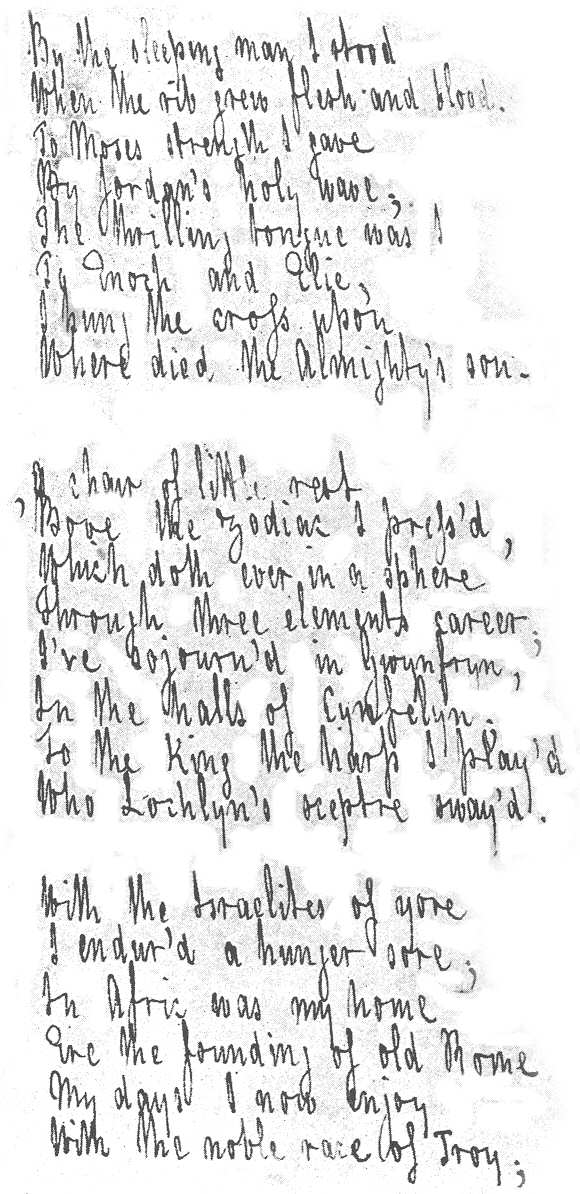 By the sleeping man I stood
When the rib grew flesh and blood.
To Moses strength I gave
By Jordan's holy wave;
The thrilling tongue was I
To Enoch and Elie,
I hung the cross upon
Where died the Almighty's son.
A chair of little rest
'Bove the zodiac I press'd,
Which doth ever in a sphere
Through three elements career;
I've sojourn'd in Gwynfryn,
In the halls of Cynfelyn.
To the King the harp I play'd
Who Lochlyn's sceptre sway'd.
With the Israelites of yore
I endur'd a hunger sore;
In Afric was my home
Ere the founding of old Rome
My days I now enjoy
With the noble race of Troy;